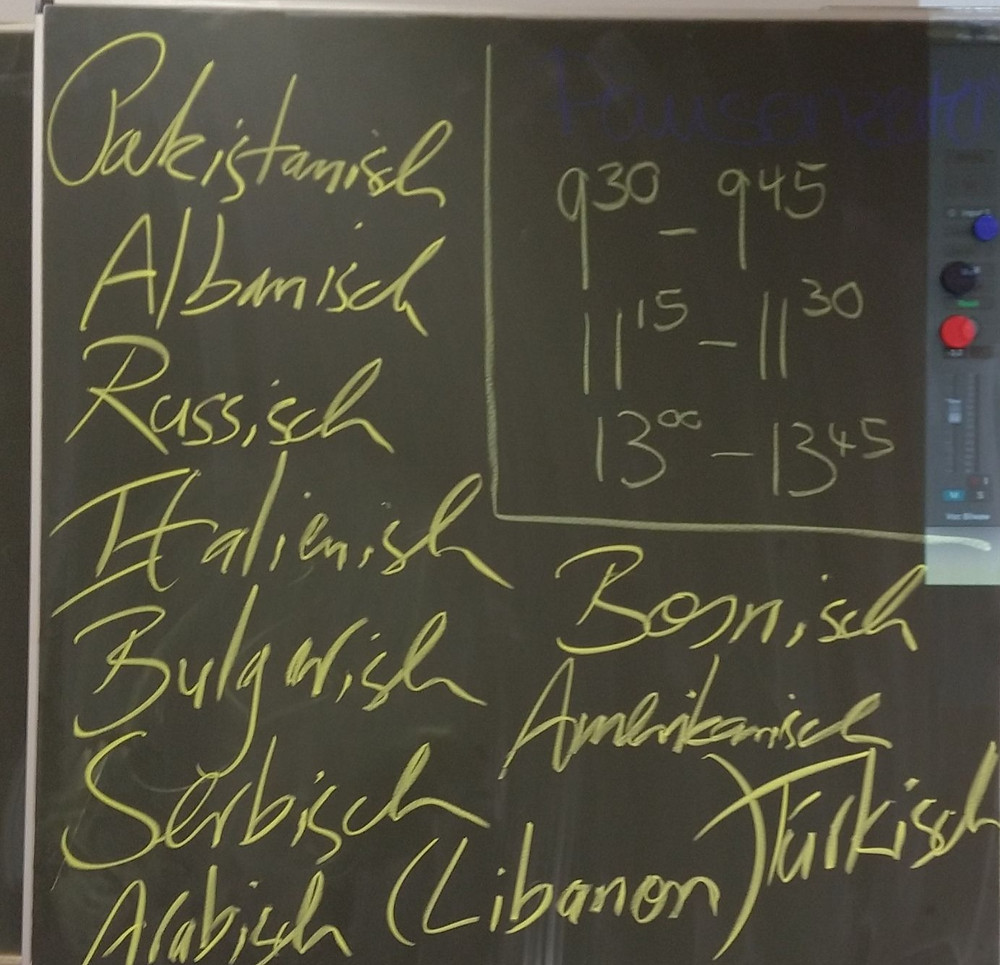 Pakistanisch
Albanisch
Russisch
Italienisch
Bulgarisch
Serbisch
Arabisch (Libanon)
9 30 - 9 45
11 15 - 11 30
13 00 - 13 45
Bosnisch
Amerikanisch
Türkisch